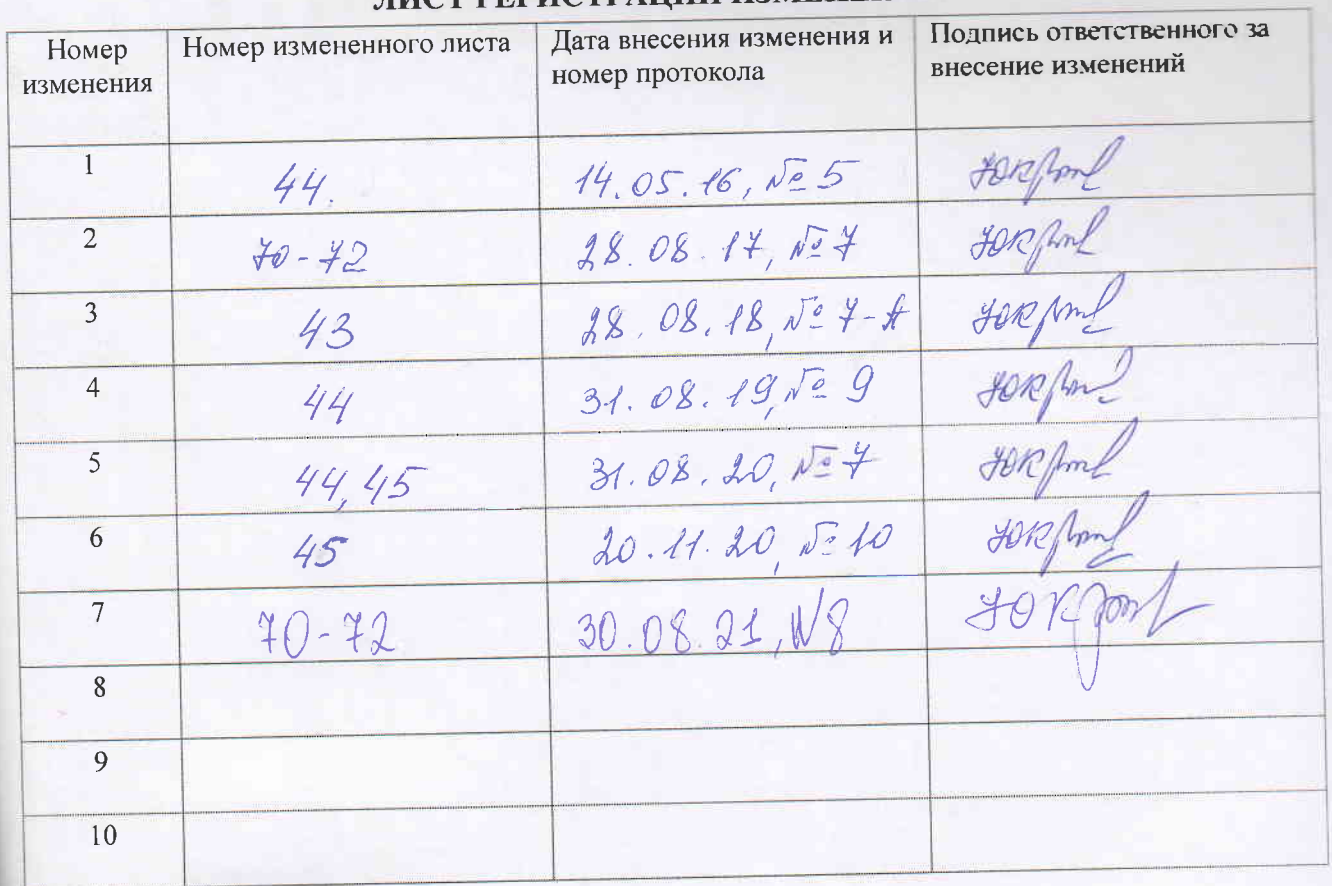 ЛИСТ РЕГИСТРАЦИИ
Номер изменения
Номер измененного листа
Дата внесения изменения и номер протокола
Подпись ответственного за внесение изменений
1 44. 14.05.16, № 5
2 70-72 28.08.17, № 7
3 43 28.08.18, № 7-А
4 44 31.08.19, № 9
5 44, 45 31.08.20, № 7
6 45 20.11.20, № 10
7 70-72 30.08.21, №8
8
9
10